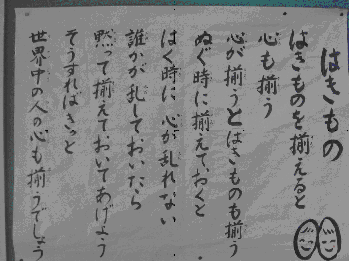 はきもの
はきものを揃えると
心も揃う
心が揃うとはきものも揃う
ぬぐ時に揃えておくと
はく時に心が乱れない
誰かが乱しておいたら
黙って揃えておいてあげよう
そうすればきっと
世界中の人の心も揃うでしょう